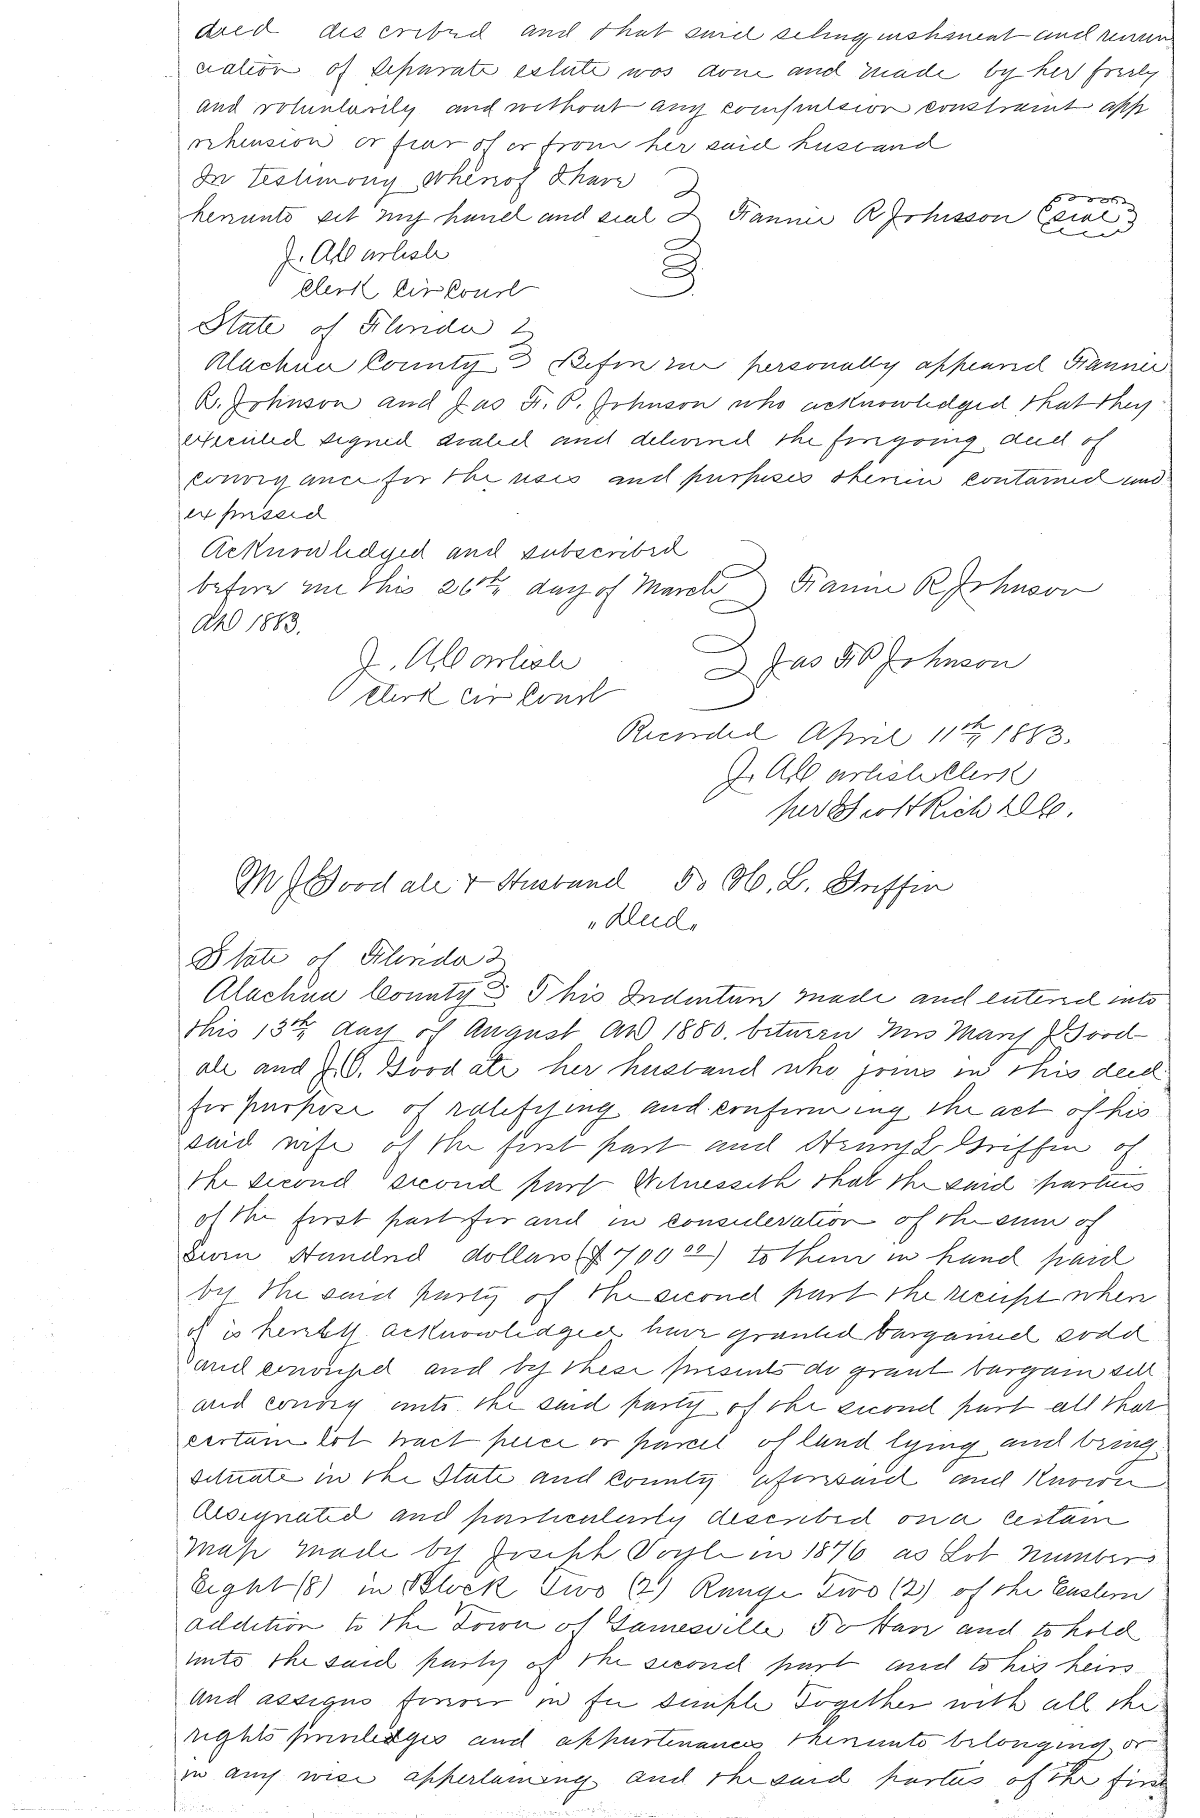 dred described and that said relinquishment and renun
ciation of separate estate was done and made by her freely
and voluntarily and without any compulsion constraint app
rehension or fear of or from her said husband
In testimony whereof I have
hereunto set my hand and seal Fannie R Johnson (seal)
J. A Carlisle
Clerk Cir Court
State of Florida
Alachua County Before me personally appeared Fannie
R. Johnson and Jas F. P. Johnson who acknowledged that they
executed signed sealed and delivered the foregoing deed of
conveyance for the uses and purposes therein contained and
expressed
Acknowledged and subscribed
before me this 26th day of March Fannie R Johnson
AD 1883.
J. A Carlisle Jas F P Johnson
Clerk Cir Court
Recorded April 11th 1883.
J. A Carlisle Clerk
per D.C.
M J Goodale & Husband To H. L. Griffin
"Deed"
State of Florida
Alachua County This Indenture made and entered into
this 13th day of August AD 1880. between Mrs Mary J Good
ale and J. O. Goodale her husband who joins in this deed
for purpose of ratifying and confirming the act of his
said wife of the first part and Henry L Griffin of
the second second part Witnesseth that the said parties
of the first part for and in consideration of the sum of
Seven Hundred dollars ($700 00) to them in hand paid
by the said party of the second part the receipt where
of is hereby acknowledged have granted bargained sold
and conveyed and by these presents do grant bargain sell
and convey unto the said party of the second part all that
certain lot tract piece or parcel of land lying and being
situate in the State and County aforesaid and known
designated and particularly described on a certain
map made by Joseph Voyle in 1876 as Lot Numbers
Eight (8) in Block Two (2) Range Two (2) of the Eastern
addition to the Town of Gainesville To Have and to hold
unto the said party of the second part and to his heirs
and assigns forever in fee simple Together with all the
rights priviledges and appurtenances thereunto belonging or
in any wise appertaining and the said parties of the first